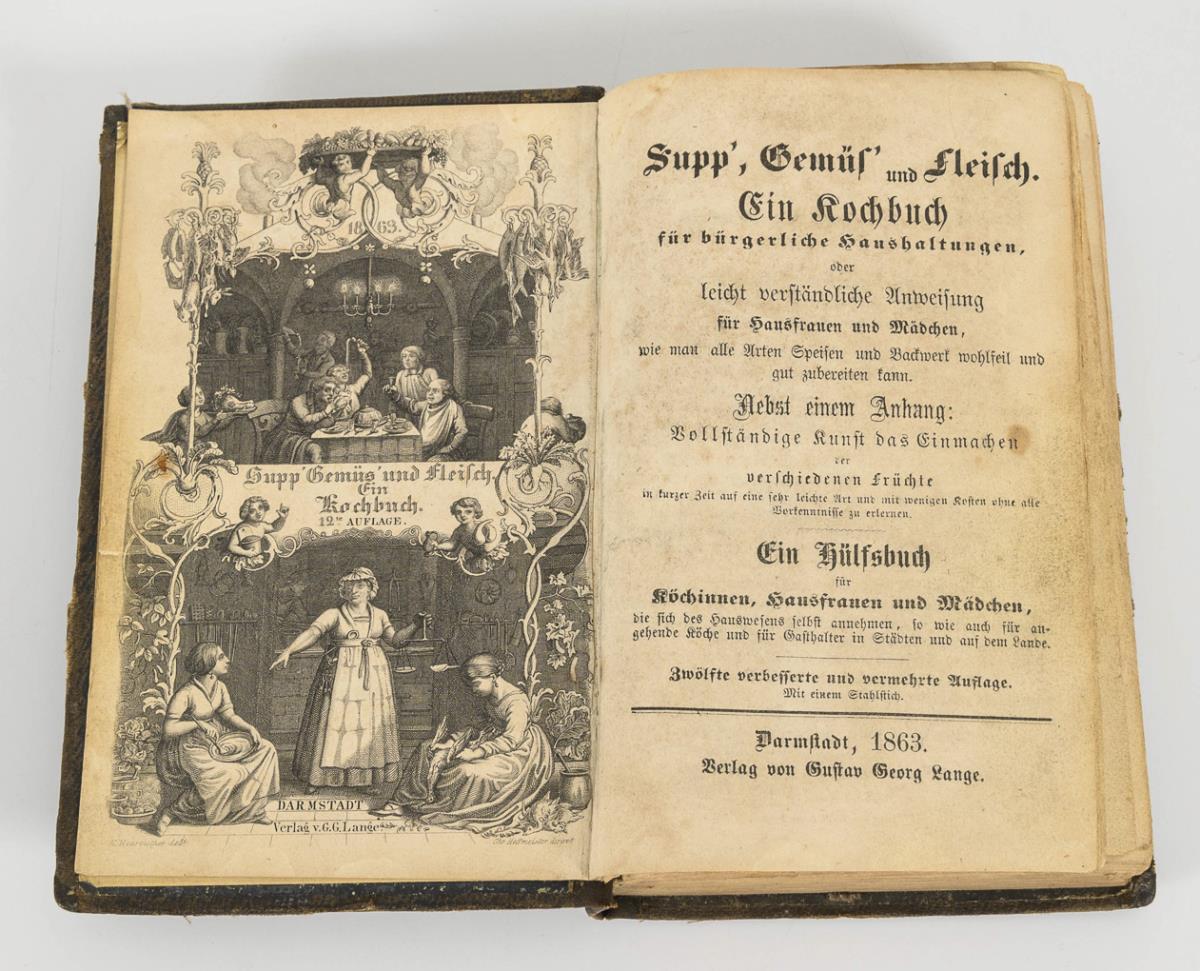 1863.
Supp' Gemüs' und Fleisch.
Ein
Kochbuch.
12te AUFLAGE.
DARMSTADT
Verlag v. G.G. Lange.
Supp', Gemüs' und Fleisch.
Ein Kochbuch
für bürgerliche Haushaltungen,
oder
leicht verständliche Anweisung
für Hausfrauen und Mädchen,
wie man alle Arten Speisen und Backwerk wohlfeil und
gut zubereiten kann.
Nebst einem Anhang:
Vollständige Kunst das Einmachen
der
verschiedenen Früchte
in kurzer Zeit auf eine sehr leichte Art und mit wenigen Kosten ohne alle
Vorkenntnisse zu erlernen.
Ein Hülfsbuch
für
Köchinnen, Hausfrauen und Mädchen,
die sich des Hauswesens selbst annehmen, so wie auch für an-
gehende Köche und für Gasthalter in Städten und auf dem Lande.
Zwölfte verbesserte und vermehrte Auflage.
Mit einem Stahlstich.
Darmstadt, 1863.
Verlag von Gustav Georg Lange.